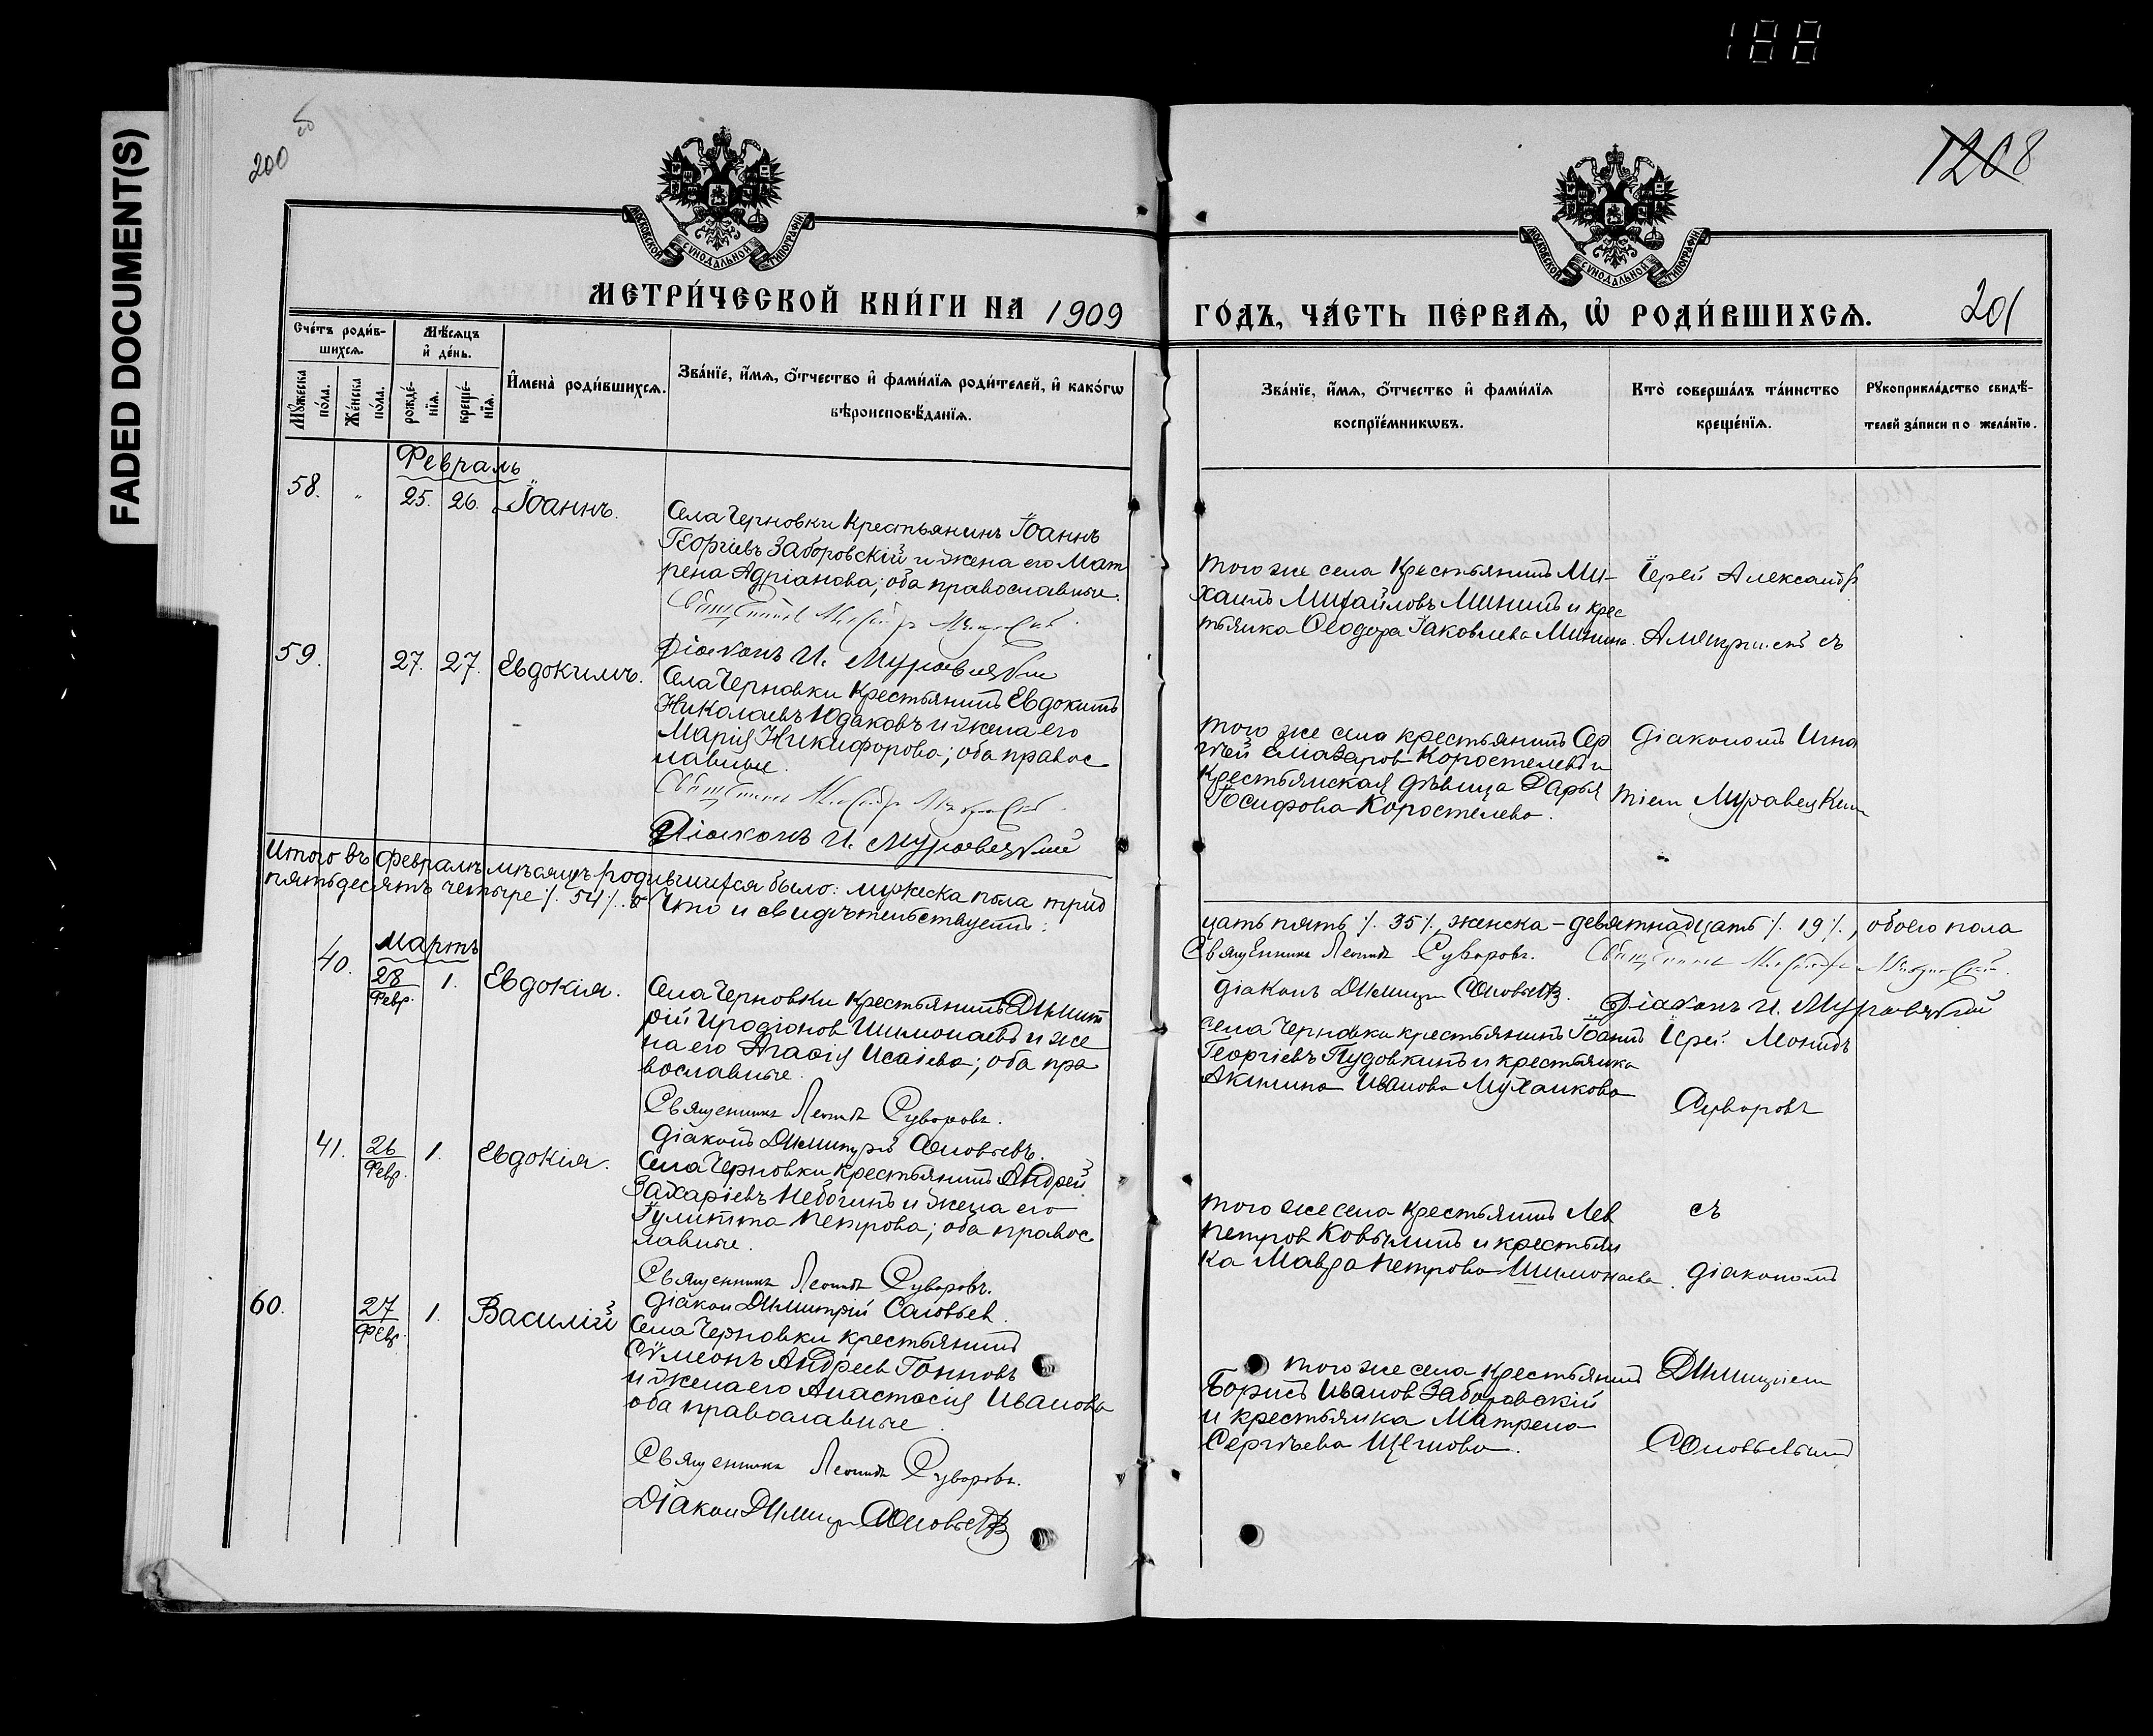 188
FADED DOCUMENT(S)
200 об
1208
МОСКОВСКОЙ СѴНОДАЛЬНОЙ ТИПОГРАФІИ
МОСКОВСКОЙ СѴНОДАЛЬНОЙ ТИПОГРАФІИ
МЕТРИ́ЧЕСКОЙ КНИ́ГИ НА 1909
ГО́ДЪ, ЧА́СТЬ ПЕ́РВАѦ, Ѡ҆ РОДИ́ВШИХСѦ.
201
Сче́тъ роди́в-
шихсѧ.
Мѣ́сѧцъ
и҆ де́нь.
Мꙋ́жеска
по́ла.
Же́нска
по́ла.
рожде́-
нїѧ.
креще́-
нїѧ.
И҆мена̀ роди́вшихсѧ.
Зва́нїе, и҆́мѧ, ѻ҆́тчество и҆ фамѝлїѧ роди́телей, и҆ како́гѡ
вѣроисповѣ́данїѧ.
Зва́нїе, и҆́мѧ, ѻ҆́тчество и҆ фамѝлїѧ
воспрїе́мникѡвъ.
Кто̀ соверша́лъ та́инство
креще́нїѧ.
Рꙋкоприкла́дство свидѣ́-
телей за́писи по жела́нїю.
Февраль
58. " 25. 26. Іоаннъ.
Села Черновки Крестьянинъ Іоаннъ
Георгіевъ Заборовскій и жена его Мат
рена Адріанова; оба православные.
Священникъ
Діаконъ И. Муравецкій
того же села Крестьянинъ Ми-
хаилъ Михайловъ Мининъ и крес
тьянка Ѳеодора Іаковлева Минина.
Іерей Александръ
съ
59. 27. 27. Евдокимъ.
Села Черновки Крестьянинъ Евдокимъ
Николаевъ Юдаковъ и жена его
Марія Никифорова; оба правос
лавные.
Священникъ
Діаконъ И. Муравецкій
того же села крестьянинъ Сер
гѣй Еліазаров Коростелевъ и
Крестьянская дѣвица Дарья
Іосифова Коростелева.
діакономъ Игна
тіем Муравецким
Итого въ Февралѣ мѣсяцѣ родившихся было: мужеска пола трид
цать пять /. 35 /., женска - девятнадцать /. 19 /., обоего пола
пятьдесятъ четыре /. 54 /. Что и свидѣтельствуетъ:
Священникъ Леонидъ Суворовъ.
Священникъ
діаконъ Димитрій Соловьевъ.
Діаконъ И. Муравецкій
Мартъ
40. 28 Февр. 1. Евдокія.
Села Черновки крестьянинъ Димит
рій Иродіонов Шимонаевъ и же
на его Агаѳія Исаіева; оба пра
вославные.
Священникъ Леонидъ Суворовъ.
діаконъ Димитрій Соловьевъ.
Села Черновки крестьянинъ Іоаннъ
Георгіевъ Пудовкинъ и крестьянка
Акилина Иванова Муханкова
Іерей Леонидъ
Суворовъ
41. 26 Февр. 1. Евдокія.
Села Черновки Крестьянинъ Андрей
Захаріевъ Небогинъ и жена его
Іулитта Петрова; оба правос
лавные.
Священникъ Леонидъ Суворовъ.
діакон Димитрій Соловьев.
того же села Крестьянинъ Лев
Петров Ковылинъ и крестьян
ка Мавра Петрова Шимонаева.
съ
діакономъ
60. 27 Февр. 1. Василій
Села Черновки крестьянинъ
Сѵмеонъ Андреев Гонновъ
и жена его Анастасія Иванова
оба православные.
Священникъ Леонидъ Суворовъ.
Діакон Димитрій Соловьевъ
того же села Крестьянинъ
Борисъ Иванов Заборовскій
и крестьянка Матрена
Сергѣева Щеглова.
Димитріем
Соловьевымъ